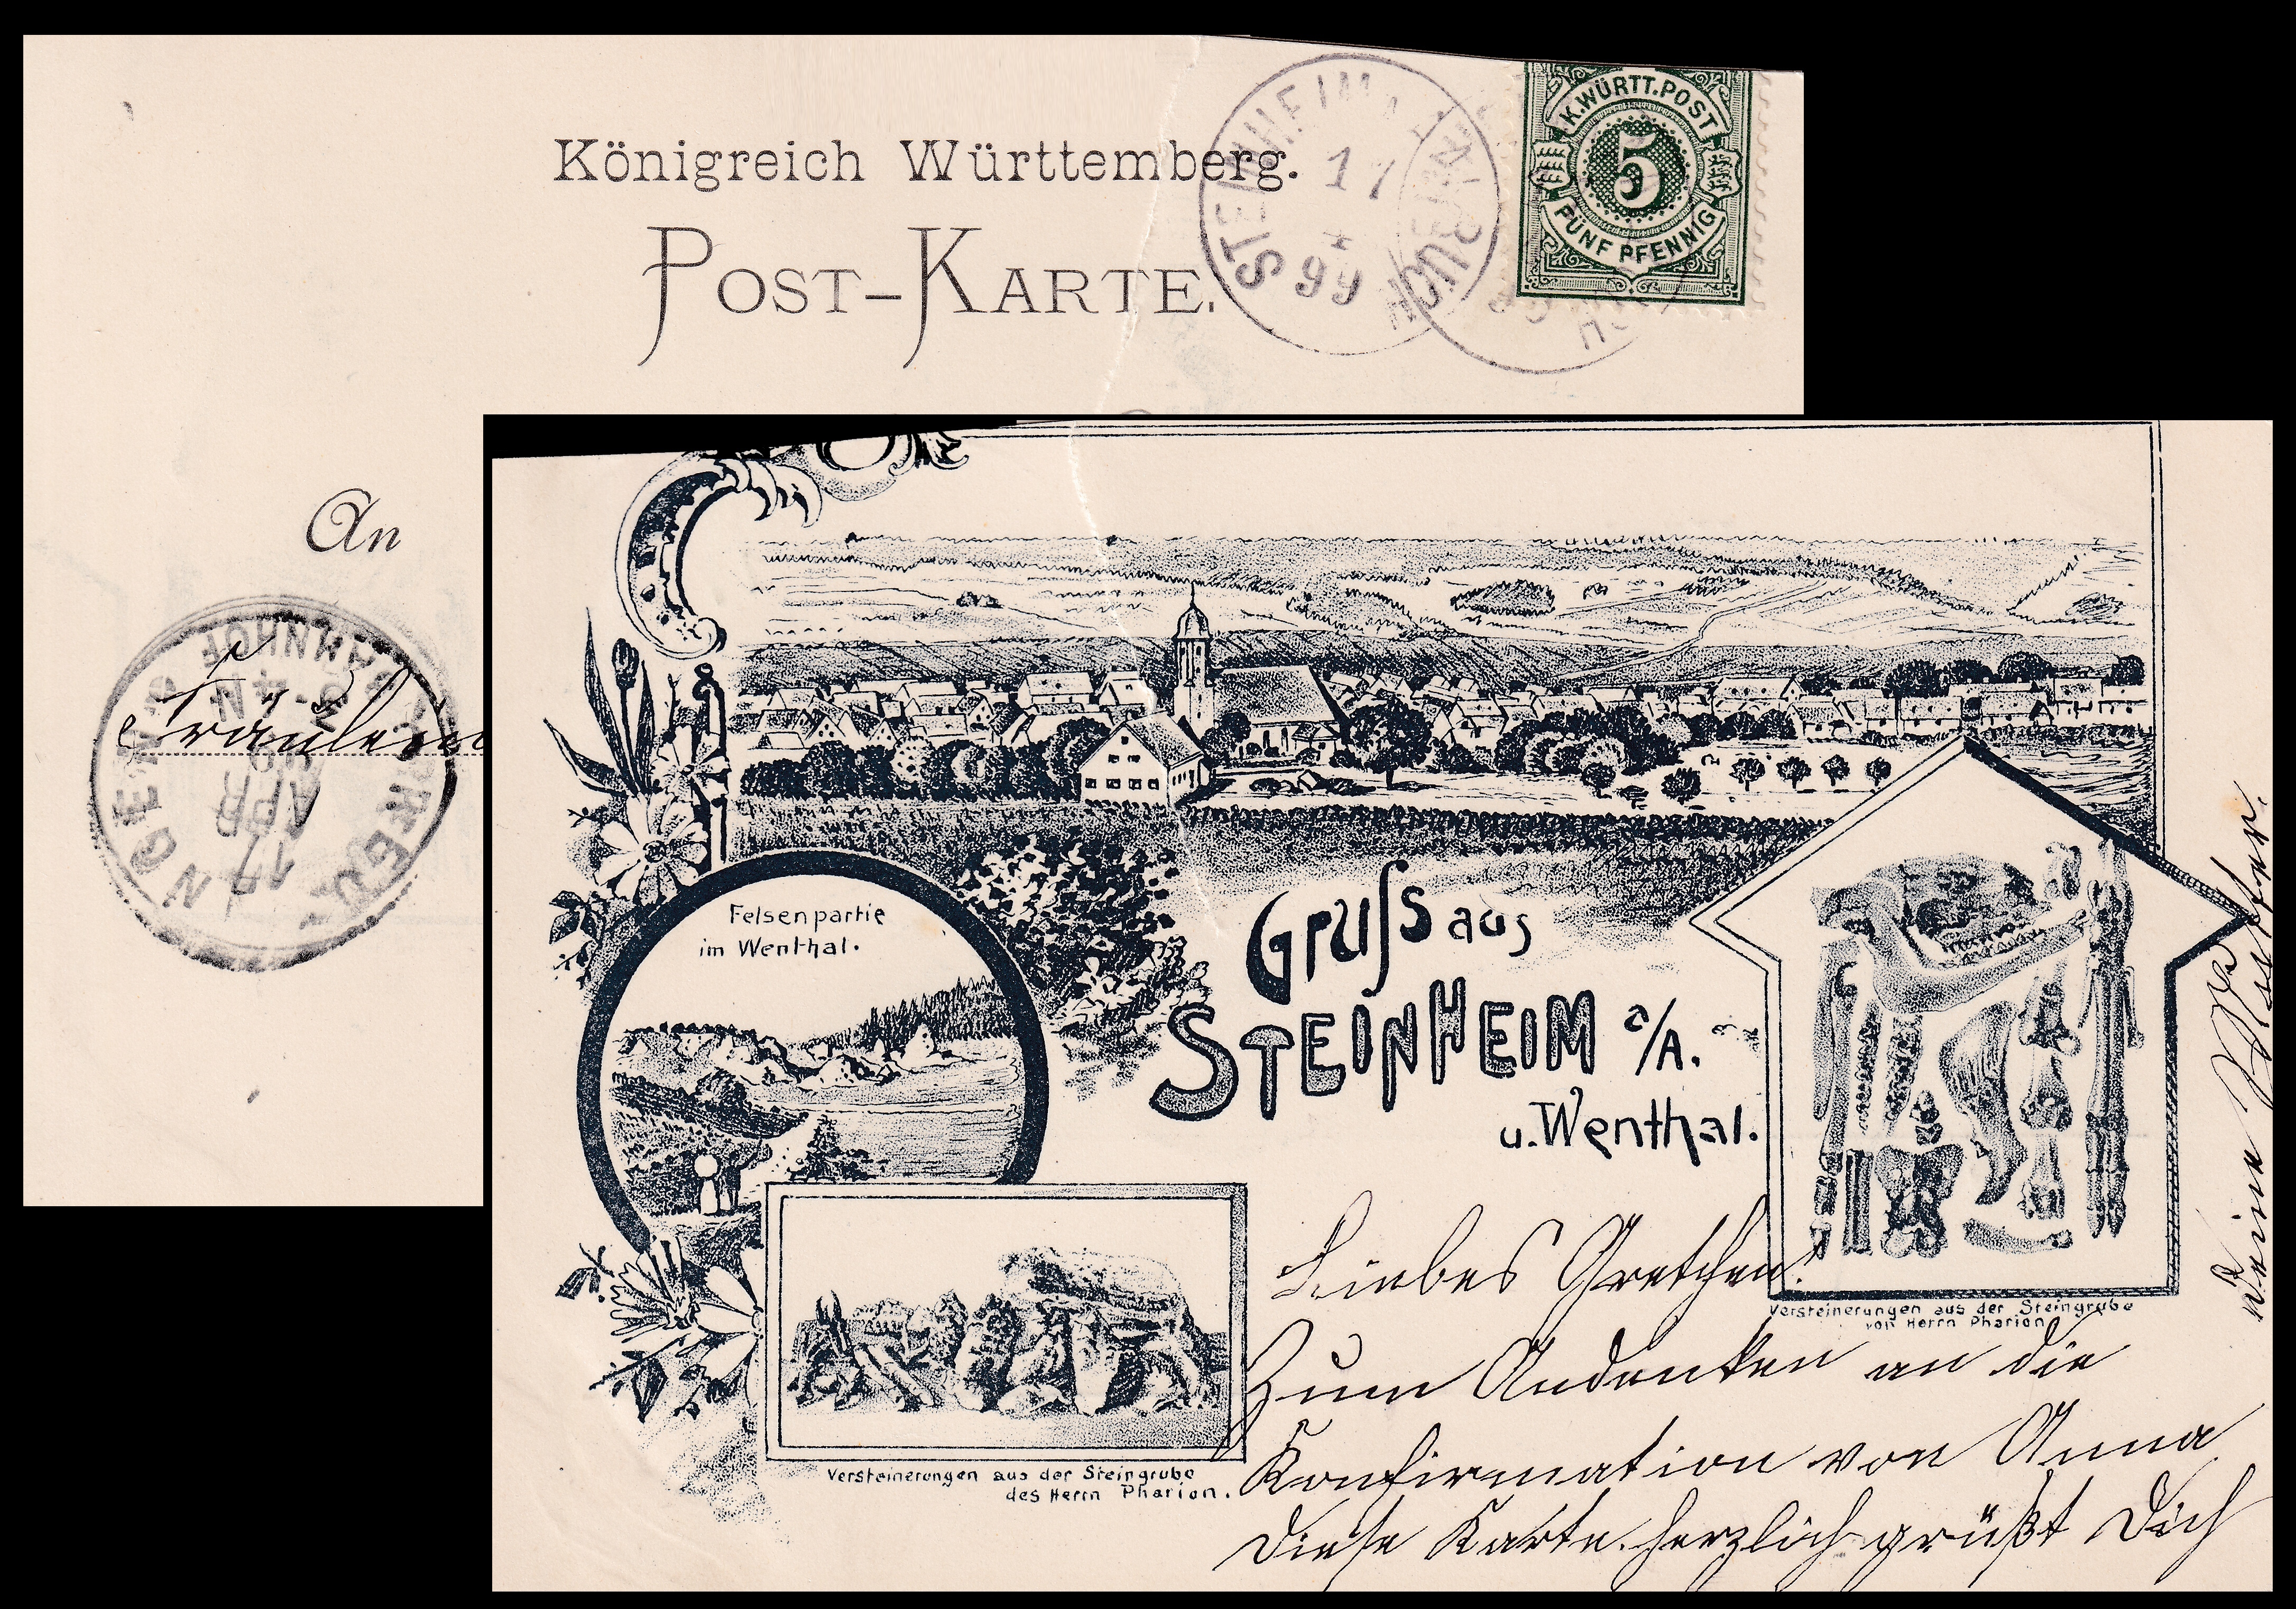 Königreich Württemberg.
POST-KARTE.
STEINHEIM
17
4
99
K. WÜRTT. POST
5
FÜNF PFENNIG
An
Fräulein
BAHNHOF
17
APR
Felsenpartie
im Wenthal.
Gruss aus
STEINHEIM a/A.
u. Wenthal.
Versteinerungen aus der Steingrube
von Herrn Pharion
Versteinerungen aus der Steingrube
des Herrn Pharion.
Liebes Gretchen!
Zum Andenken an die
Konfirmation von Anna
diese Karte. herzlich grüßt Dich
Deine